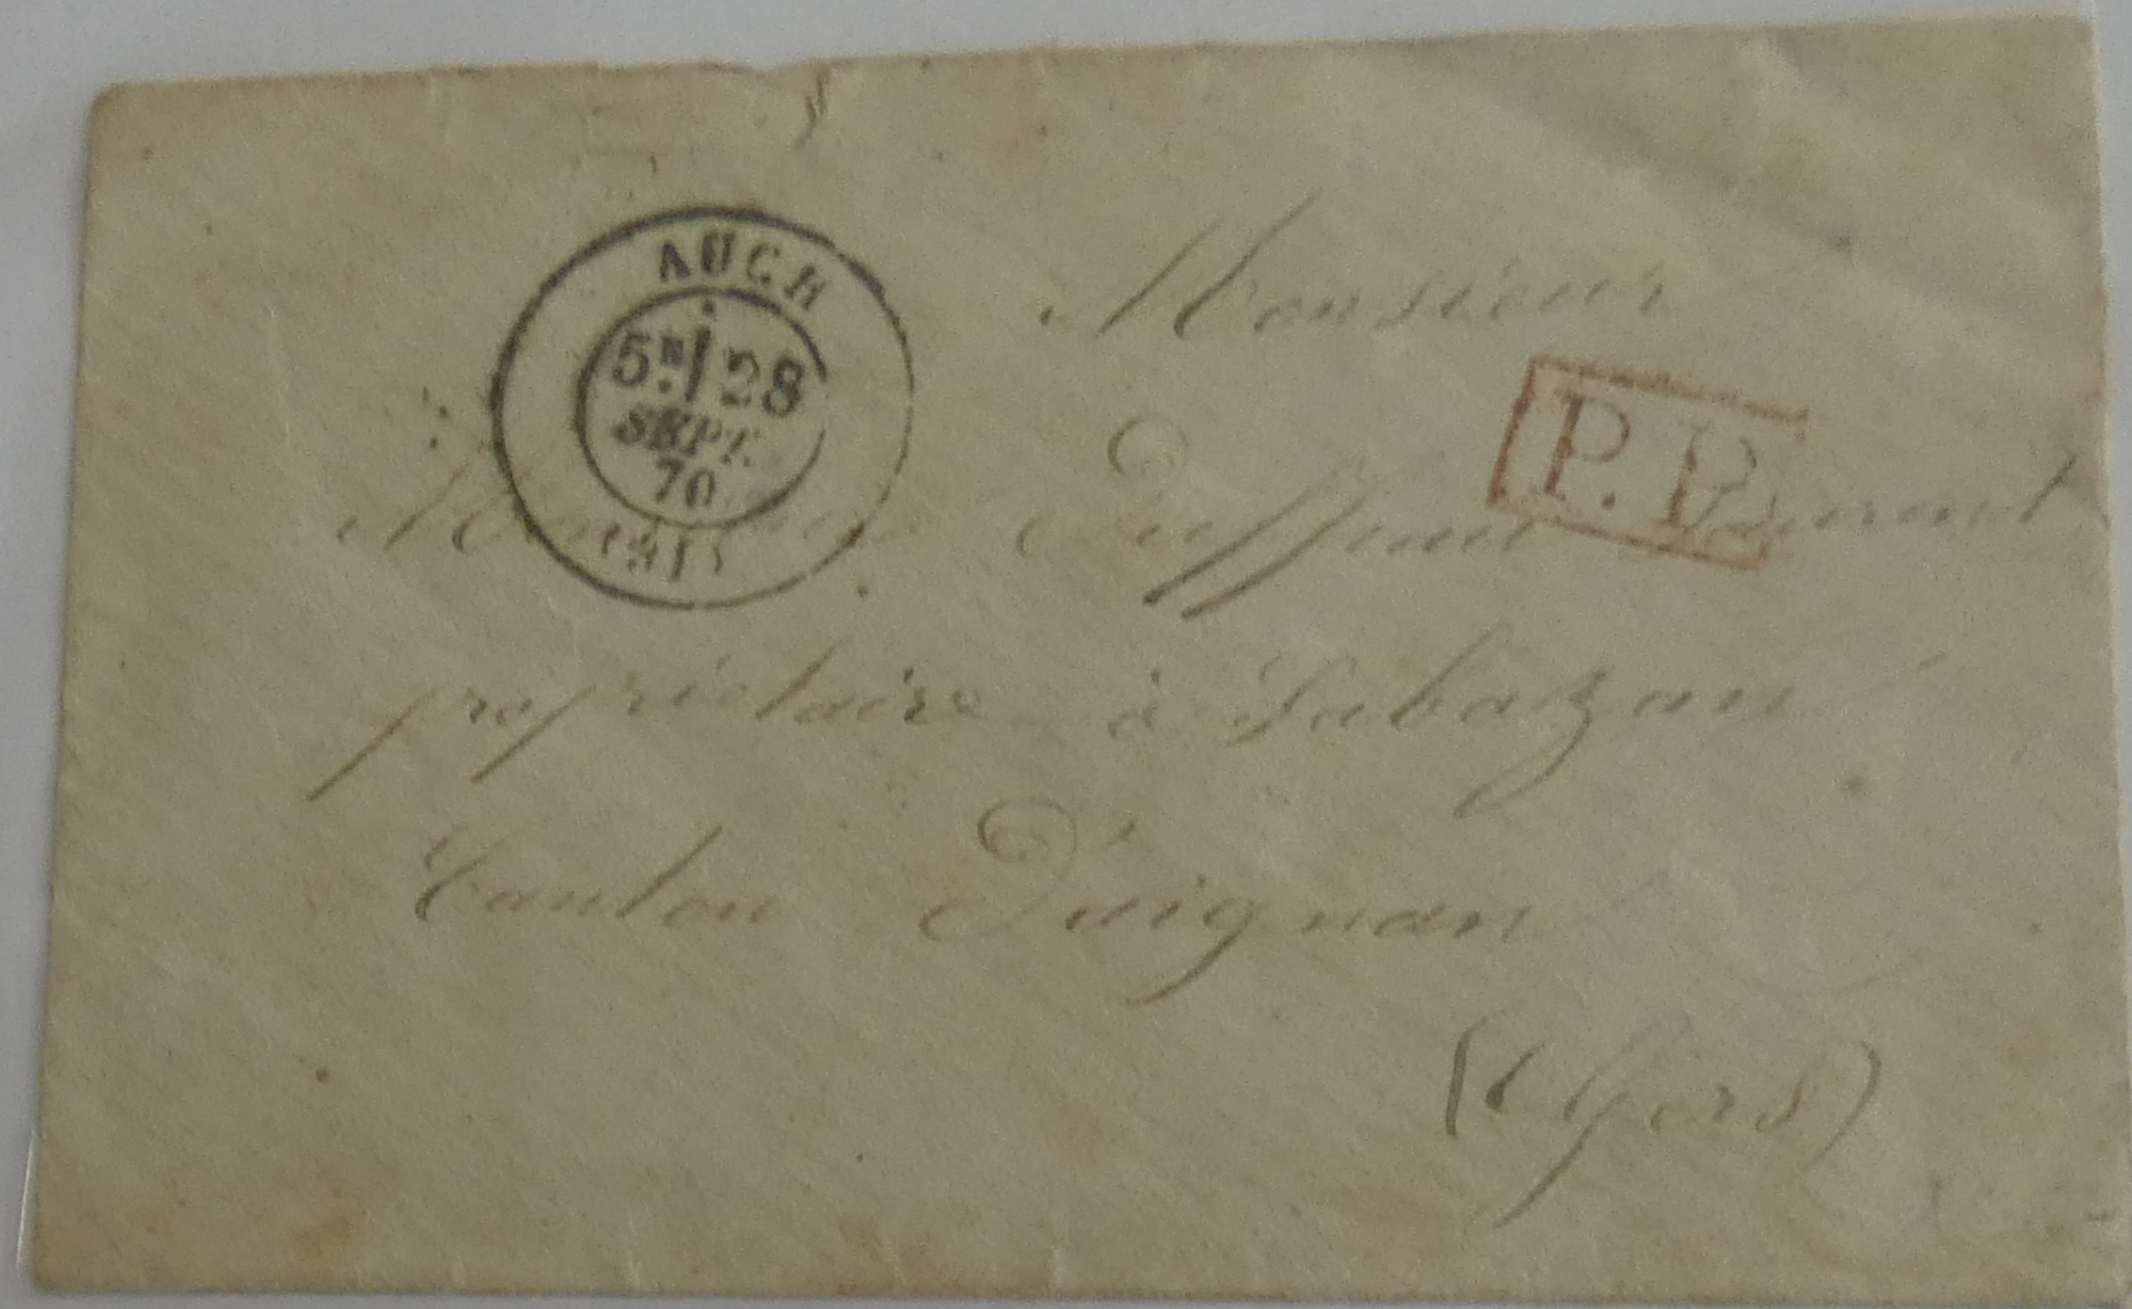 AUCH
5ᵉ/ 28
SEPT.
70
(31)
Monsieur
P.P.
Monsieur
propriétaire à Sabazan
Canton D'aignan
(Gers)